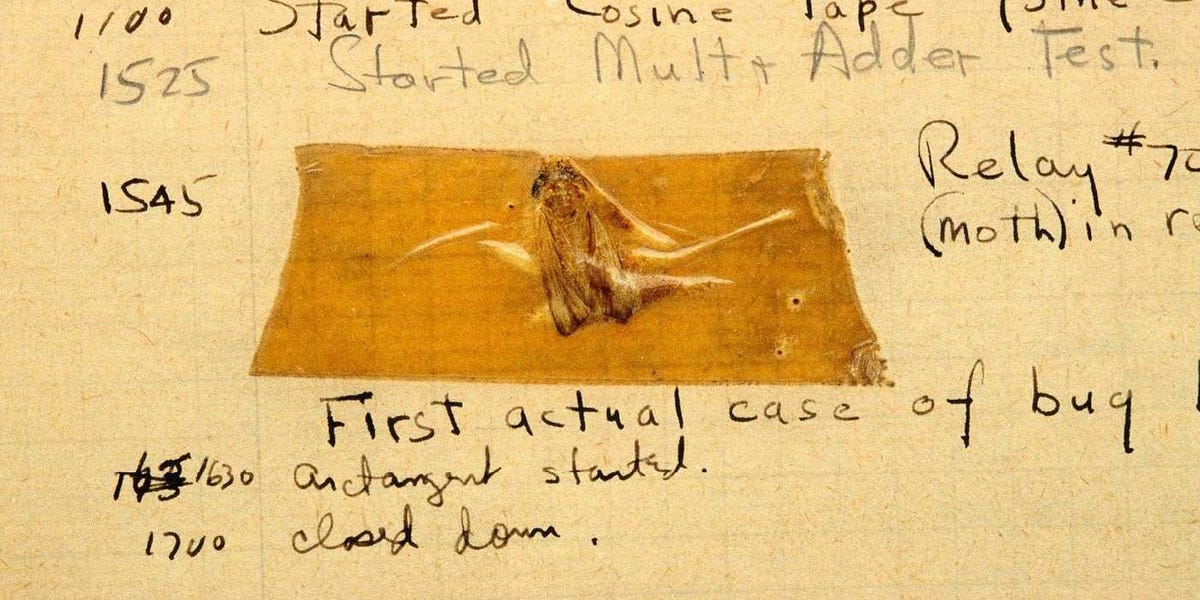 1100 Started Cosine Tape (Sine
1525 Started Mult+ Adder Test.
1545 Relay #70
(moth) in re
First actual case of bug b
1630 arctangent started.
1700 closed down.